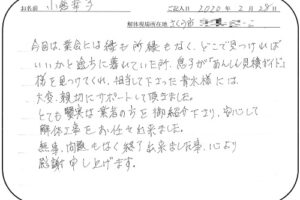 お名前 小 幸子 ご記入日 2020年2月28日
解体現場所在地 さくら市
今回は、業者とは縁も所縁もなく、どこで見つければ
いいかと途方に暮れていた所、息子が「あんしん見積ガイド」
様を見つけてくれ、担当して下さった青木様には、
大変、親切にサポートして頂きました。
とても誠実な業者の方を御紹介下さり、安心して
解体工事をお任せ出来ました。
無事、問題もなく終了出来ました事、心より
感謝申し上げます。